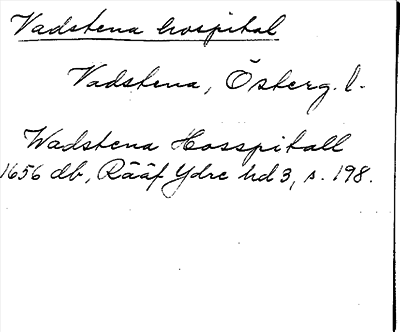 Vadstena hospital
Vadstena, Österg. l.
Wadstena Hosspitall
1656 db, Rääf Ydre hd 3, s. 198.